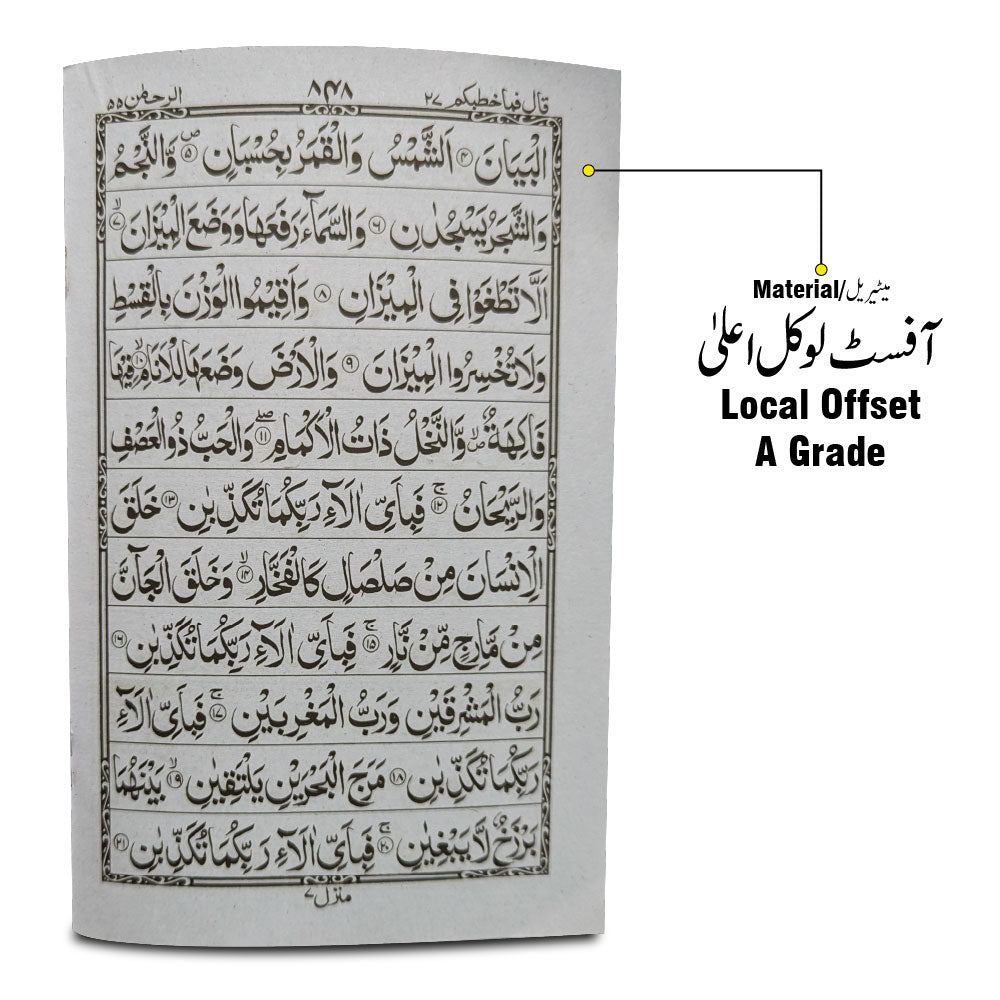 قال فما خطبکم ۲۷
۸۴۸
الرحمٰن ۵۵
الْبَيَانَ ۴ اَلشَّمْسُ وَالْقَمَرُ بِحُسْبَانٍ ۵ ص وَّالنَّجْمُ
وَالشَّجَرُ يَسْجُدٰنِ ۶ وَالسَّمَآءَ رَفَعَهَا وَوَضَعَ الْمِيْزَانَ ۷ لا
اَلَّا تَطْغَوْا فِى الْمِيْزَانِ ۸ وَاَقِيْمُوا الْوَزْنَ بِالْقِسْطِ
وَلَا تُخْسِرُوا الْمِيْزَانَ ۹ وَالْاَرْضَ وَضَعَهَا لِلْاَنَامِ ۱۰ لا فِيْهَا
فَاكِهَةٌ ص لا وَّالنَّخْلُ ذَاتُ الْاَكْمَامِ ۱۱ صلے وَالْحَبُّ ذُو الْعَصْفِ
وَالرَّيْحَانُ ۱۲ ج فَبِاَىِّ اٰلَآءِ رَبِّكُمَا تُكَذِّبٰنِ ۱۳ خَلَقَ
الْاِنْسَانَ مِنْ صَلْصَالٍ كَالْفَخَّارِ ۱۴ لا وَخَلَقَ الْجَآنَّ
مِنْ مَّارِجٍ مِّنْ نَّارٍ ۱۵ ج فَبِاَىِّ اٰلَآءِ رَبِّكُمَا تُكَذِّبٰنِ ۱۶
رَبُّ الْمَشْرِقَيْنِ وَرَبُّ الْمَغْرِبَيْنِ ۱۷ ج فَبِاَىِّ اٰلَآءِ
رَبِّكُمَا تُكَذِّبٰنِ ۱۸ مَرَجَ الْبَحْرَيْنِ يَلْتَقِيٰنِ ۱۹ لا بَيْنَهُمَا
بَرْزَخٌ لَّا يَبْغِيٰنِ ۲۰ ج فَبِاَىِّ اٰلَآءِ رَبِّكُمَا تُكَذِّبٰنِ ۲۱
منزل ۷
Material/میٹیریل
آفسٹ لوکل اعلیٰ
Local Offset
A Grade